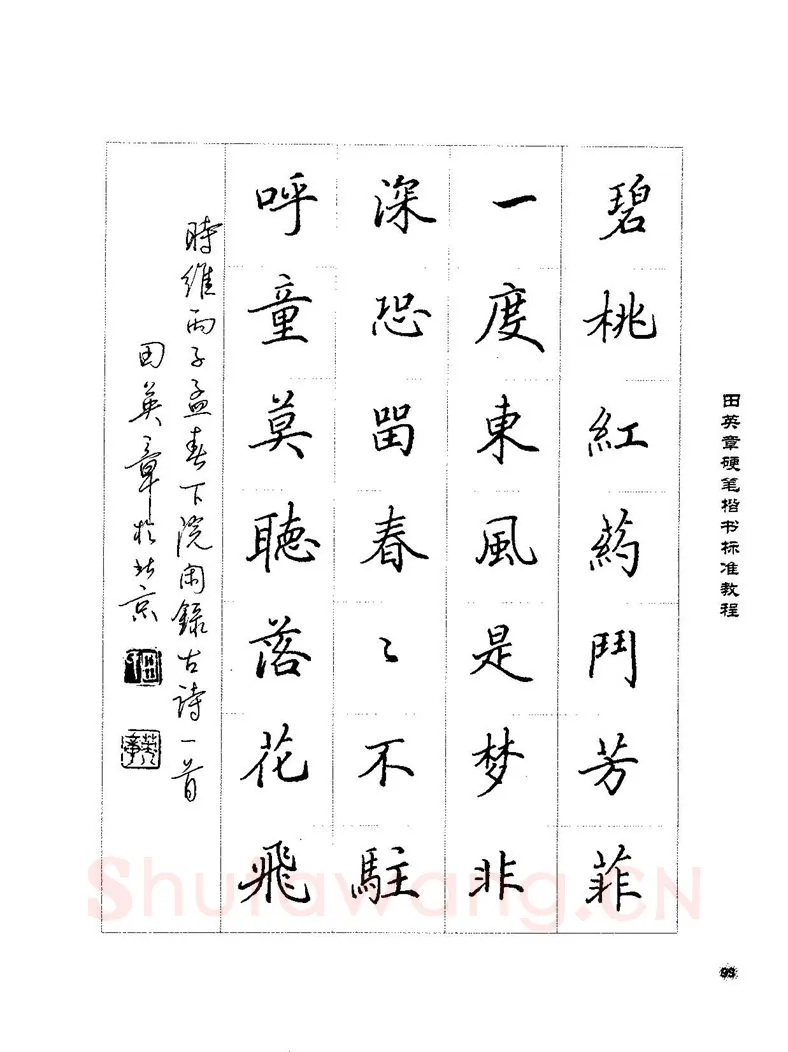 碧桃紅藥鬥芳菲
一度東風是梦非
深恐畱春〻不駐
呼童莫聽落花飛
時維丙子孟春下浣閑錄古詩一首
田英章於北京
田英章硬笔楷书标准教程
Shufawang.CN
99